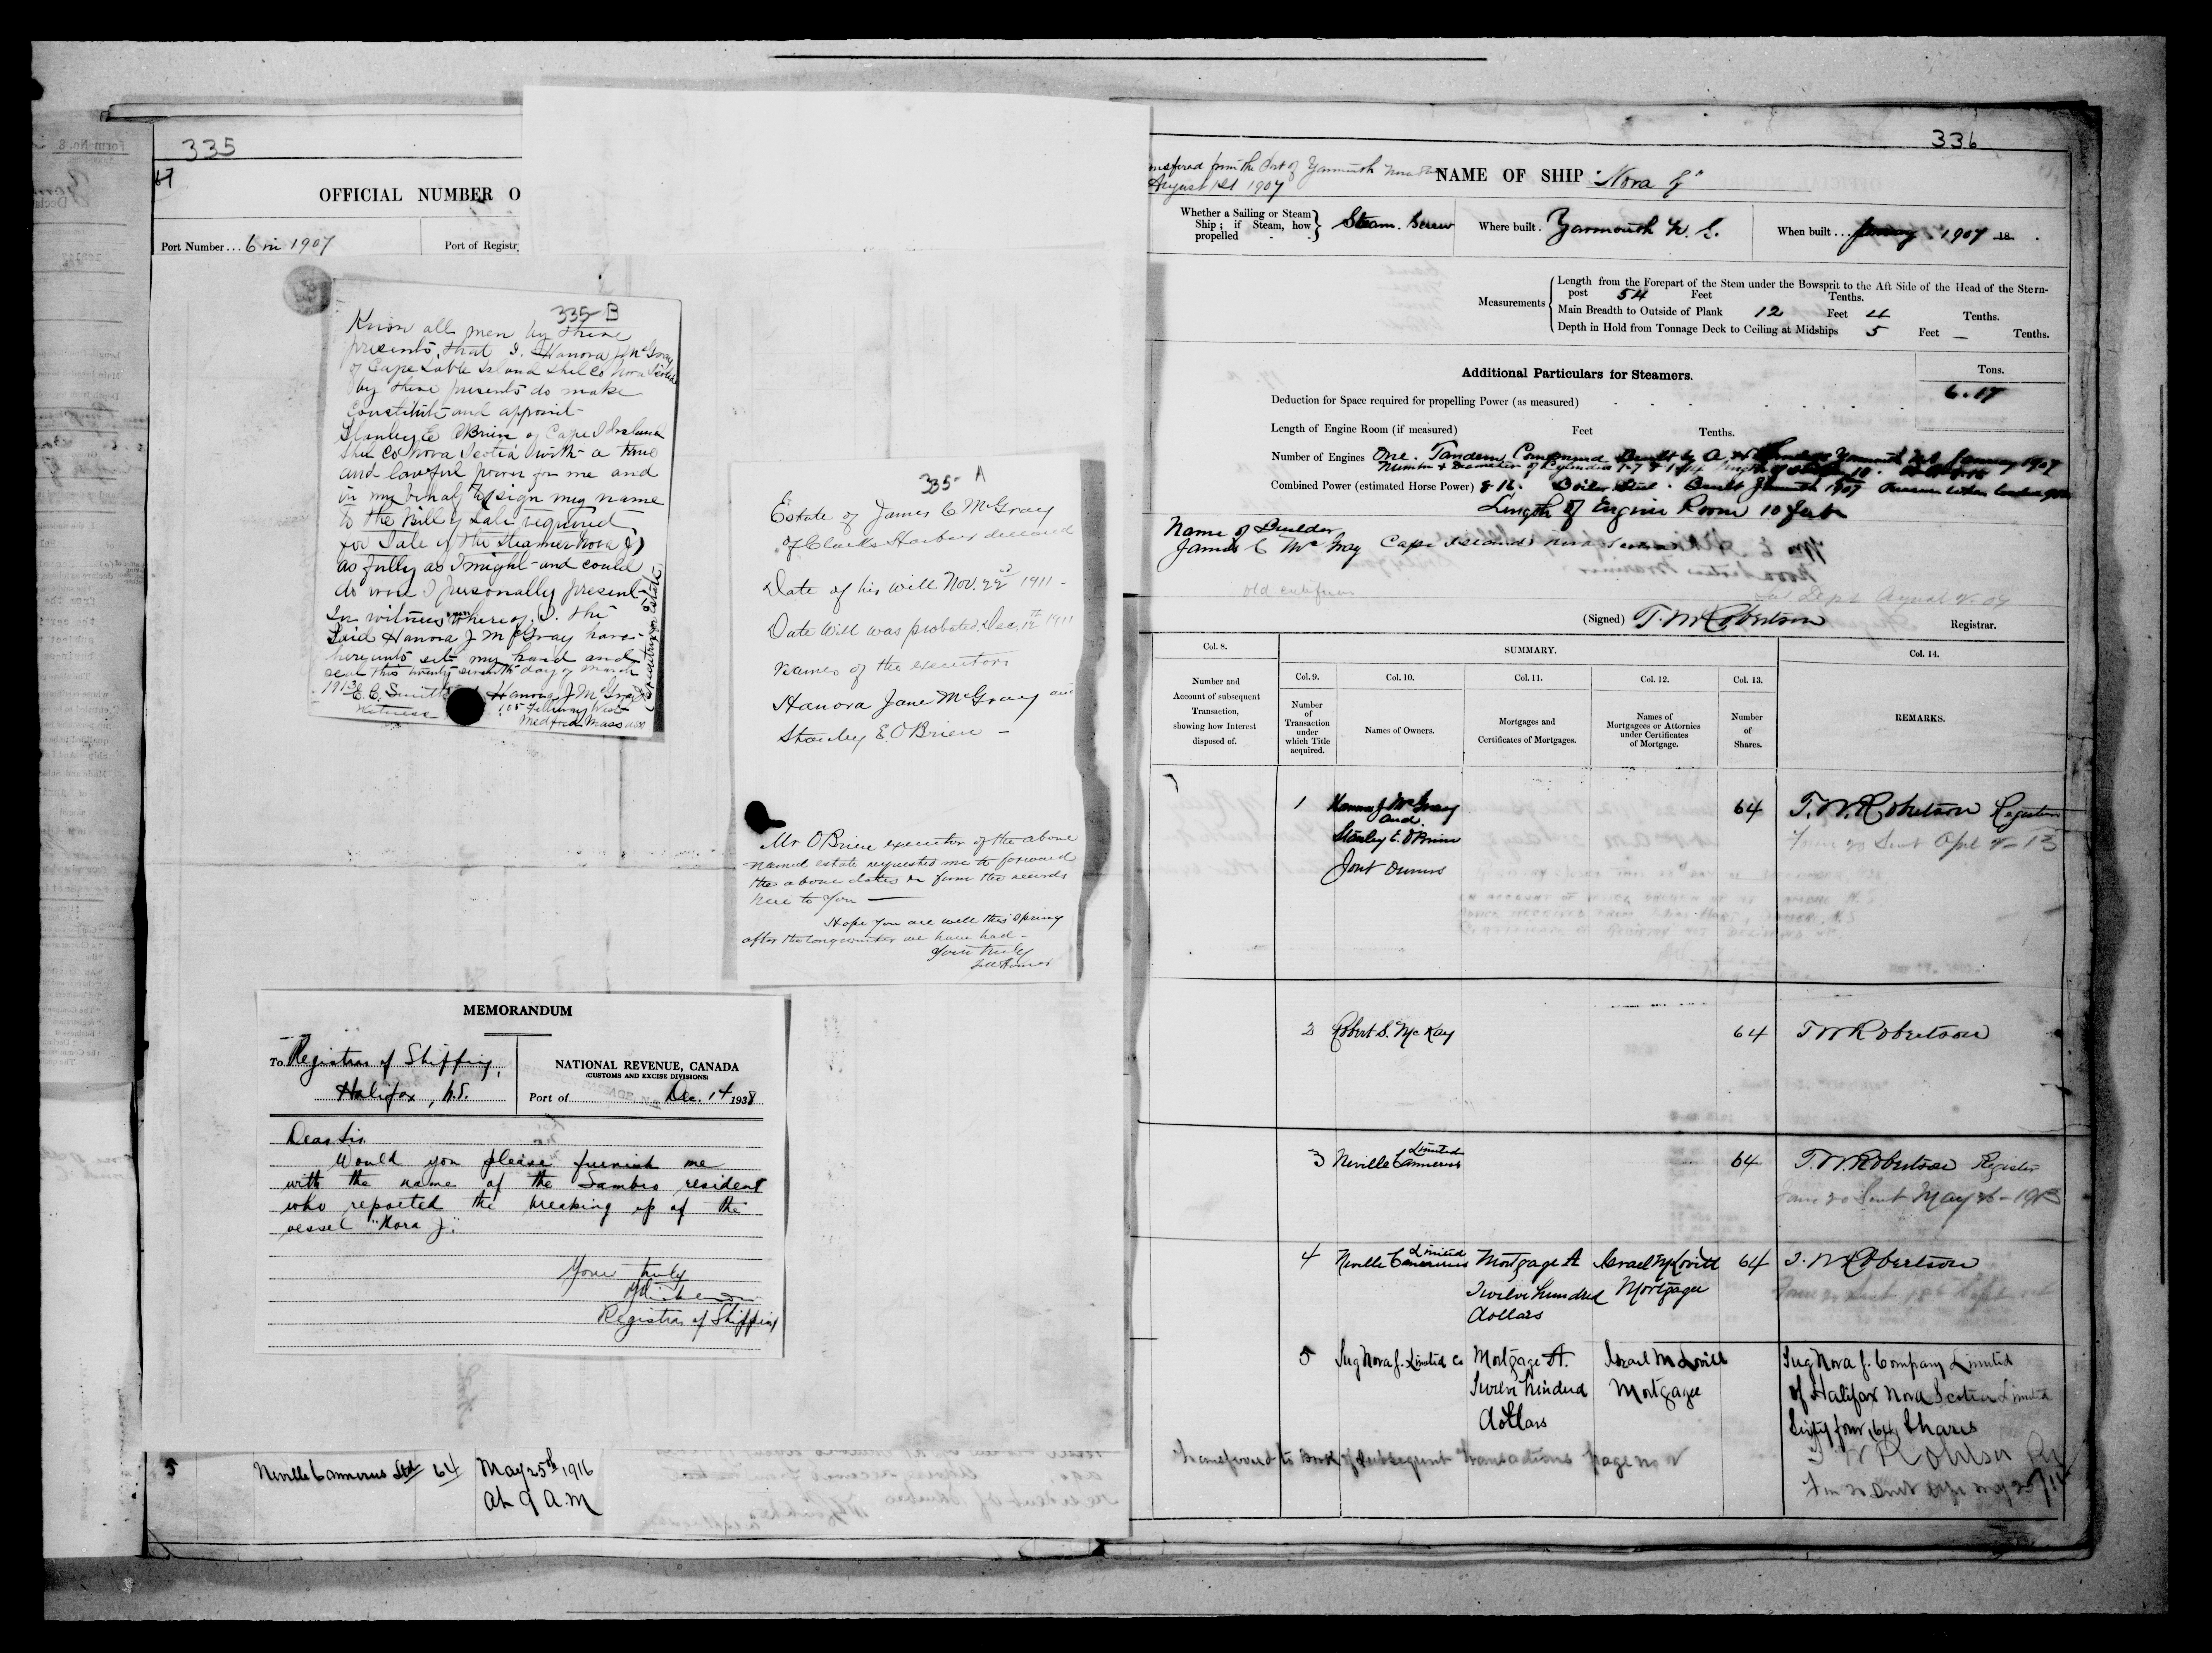 335
OFFICIAL NUMBER O
Port Number... 6 in 1907
Port of Registr
335-B
Know all men by these
presents, that I, Hanora J McGray
of Cape Sable Island Shel Co Nova Scotia
by these presents do make
Constitute and appoint
Stanley E OBrien of Cape Island
Shel Co Nova Scotia with a true
and lawful power for me and
in my behalf to sign my name
to the Bill of Sale required
for Sale of the steamer Nora J
as fully as I might and could
do were I personally present
In witness whereof, I, the
Said Hanora J McGray have
hereunto set my hand and
seal this twenty seventh day of March
1913
E. C. Smith
Hanora J. McGray
Witness
105 Fellsway West
Medford Mass
335 A
Estate of James C McGray
of Clarks Harbour deceased
Date of his will Nov. 22d 1911 -
Date Will was probated. Dec. 12th 1911
names of the executors
Hanora Jane McGray and
Stanley E. OBrien -
Mr OBrien executor of the above
named estate requested me to forward
the above dates from the records
here to you
Hope you are well this Spring
after the long winter we have had -
Yours truly
MEMORANDUM
To Registrar of Shipping,
Halifax, N.S.
NATIONAL REVENUE, CANADA
(CUSTOMS AND EXCISE DIVISIONS)
Port of Dec. 14 1938
Dear Sir.
Would you please furnish me
with the name of the Sambro resident
who reported the breaking up of the
vessel "Nora J."
Yours truly
Registrar of Shipping
5 Neville Canneries Ltd 64 May 25th 1916
at 9 a.m
336
Transfered from the Port of Yarmouth Nova Scotia
August 1st 1907
NAME OF SHIP "Nora J"
Whether a Sailing or Steam Ship; if Steam, how propelled Steam. Screw
Where built. Yarmouth N. S.
When built... January 1907 18
Measurements
Length from the Forepart of the Stem under the Bowsprit to the Aft Side of the Head of the Stern-
post 54 Feet Tenths.
Main Breadth to Outside of Plank 12 Feet 4 Tenths.
Depth in Hold from Tonnage Deck to Ceiling at Midships 5 Feet — Tenths.
Additional Particulars for Steamers.
Tons.
Deduction for Space required for propelling Power (as measured) 6.17
Length of Engine Room (if measured) Feet Tenths.
Number of Engines One. Tandem Compound Built by A. Yarmouth N.S. January 1907
Number & Diameter of Cylinders
Combined Power (estimated Horse Power) Boiler Steel. Built Yarmouth 1907
Length of Engine Room 10 feet
Name of Builder
James C McGray Cape Island Nova Scotia
(Signed) T. W. Robertson Registrar.
Col. 8.
Number and
Account of subsequent
Transaction,
showing how Interest
disposed of.
SUMMARY.
Col. 9.
Number
of
Transaction
under
which Title
acquired.
Col. 10.
Names of Owners.
Col. 11.
Mortgages and
Certificates of Mortgages.
Col. 12.
Names of
Mortgagees or Attornies
under Certificates
of Mortgage.
Col. 13.
Number
of
Shares.
Col. 14.
REMARKS.
1 Hanora J McGray 64 T. W. Robertson Registrar
and
Stanley E. OBrien
Joint Owners
Form 20 Sent Apl 2-13
2 Robert S. McKay 64 T W Robertson
3 Neville Canneries Limited 64 T. W. Robertson Registrar
Form 20 Sent May 26-1913
4 Neville Canneries Limited Mortgage A Israel M Lovitt 64 T. W Robertson
Twelve hundred Mortgagee
dollars
5 Tug Nora J. Limited Co Mortgage A. Israel M Lovitt
Twelve hundred Mortgagee
dollars
Tug Nora J. Company Limited
of Halifax Nova Scotia Limited
Sixty four, 64, Shares
Transferred to Book of Subsequent Transactions page no